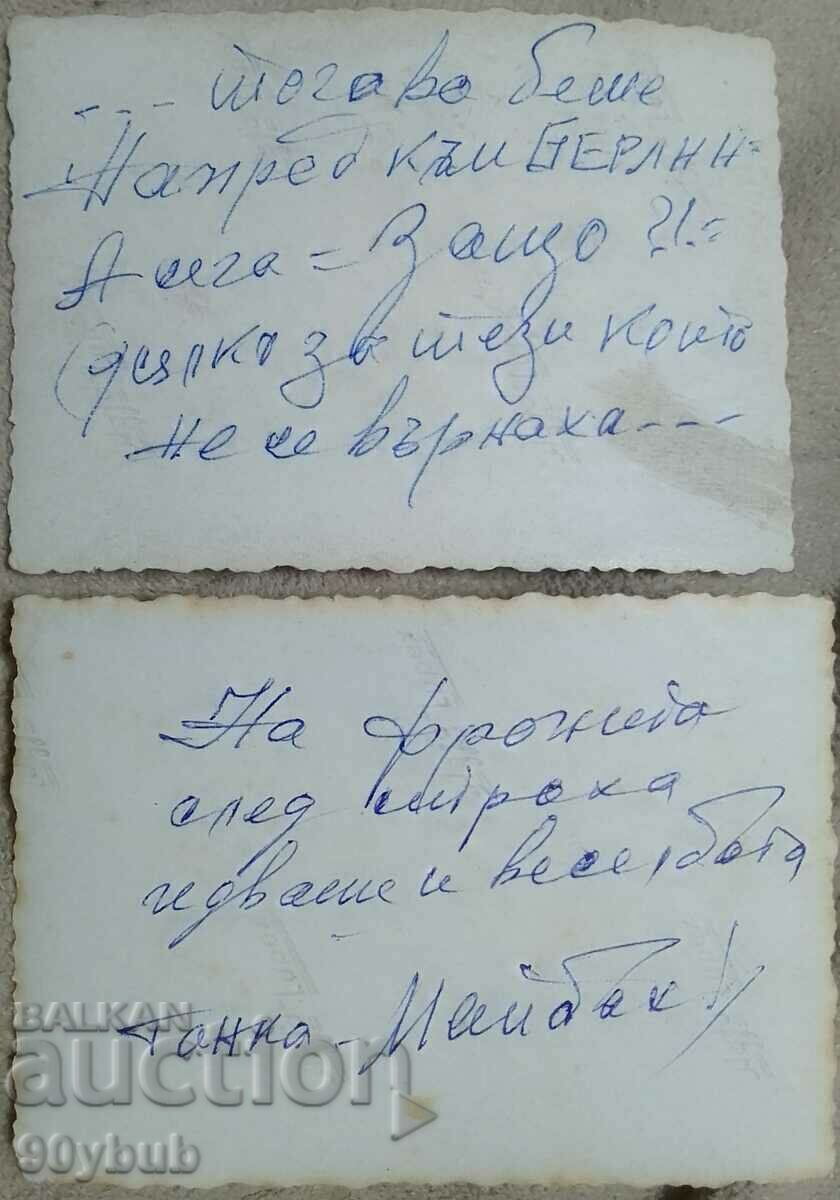 --- тогава беше
Напред към БЕРЛИН-
А сега = Защо ?!-
(жалко за тези които
не се върнаха ---
На фронта
след страха
идваше и веселбата
Танка - Майбах!
BALKAN
auction
90ybub